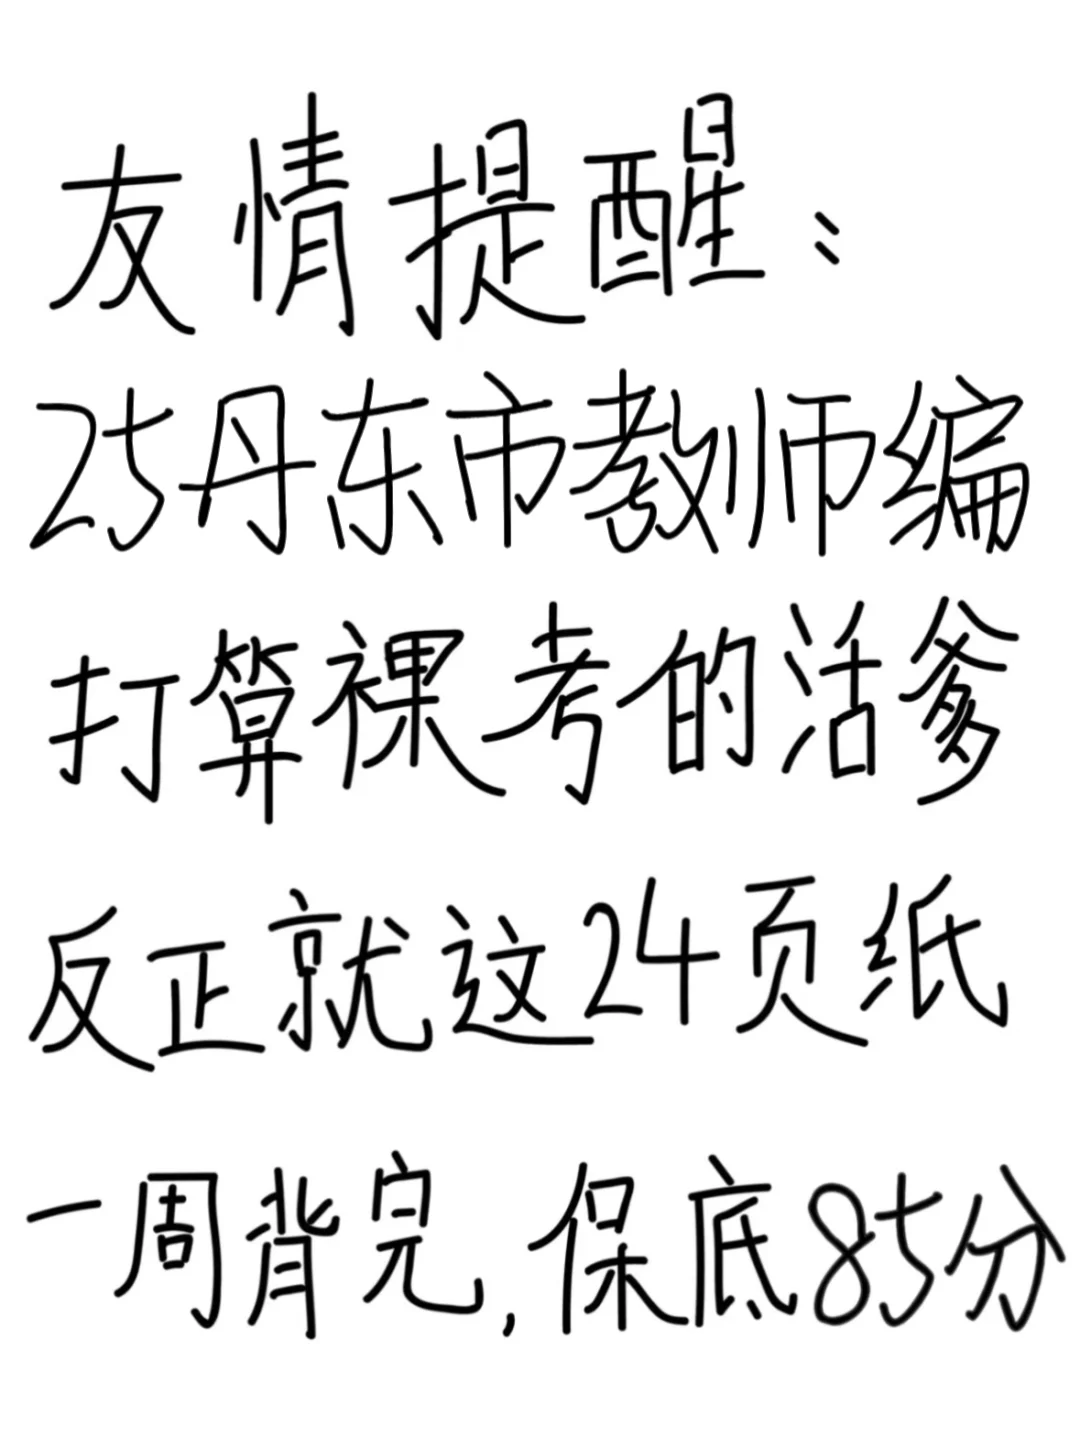 友情提醒:
25丹东市教师编
打算裸考的活爹
反正就这24页纸
一周背完,保底85分